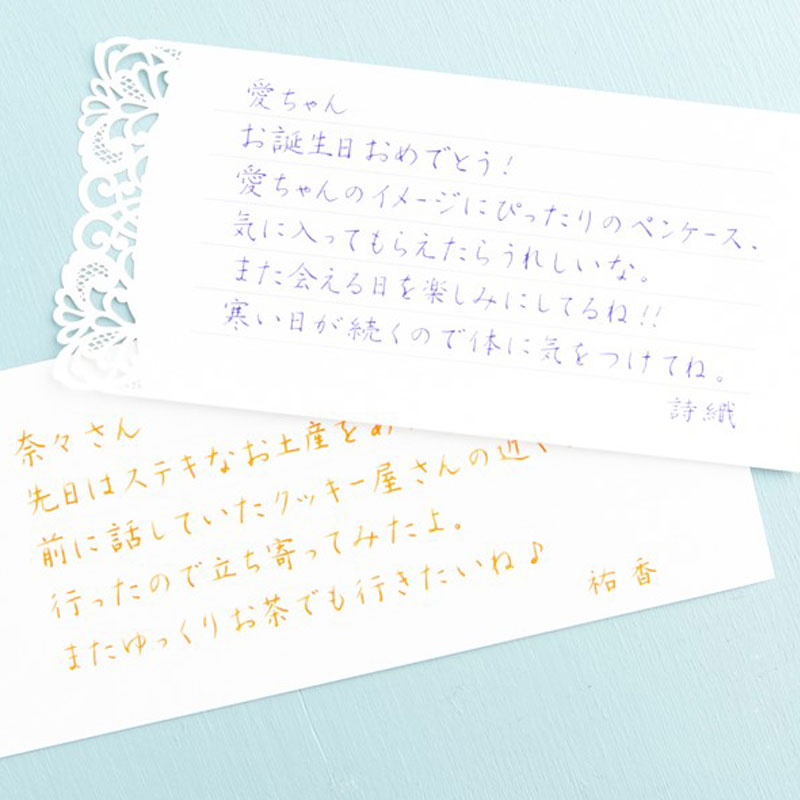 愛ちゃん
お誕生日おめでとう!
愛ちゃんのイメージにぴったりのペンケース、
気に入ってもらえたらうれしいな。
また会える日を楽しみにしてるね!!
寒い日が続くので体に気をつけてね。
詩織
奈々さん
先日はステキなお土産を
前に話していたクッキー屋さんの近く
行ったので立ち寄ってみたよ。
またゆっくりお茶でも行きたいね♪
祐香